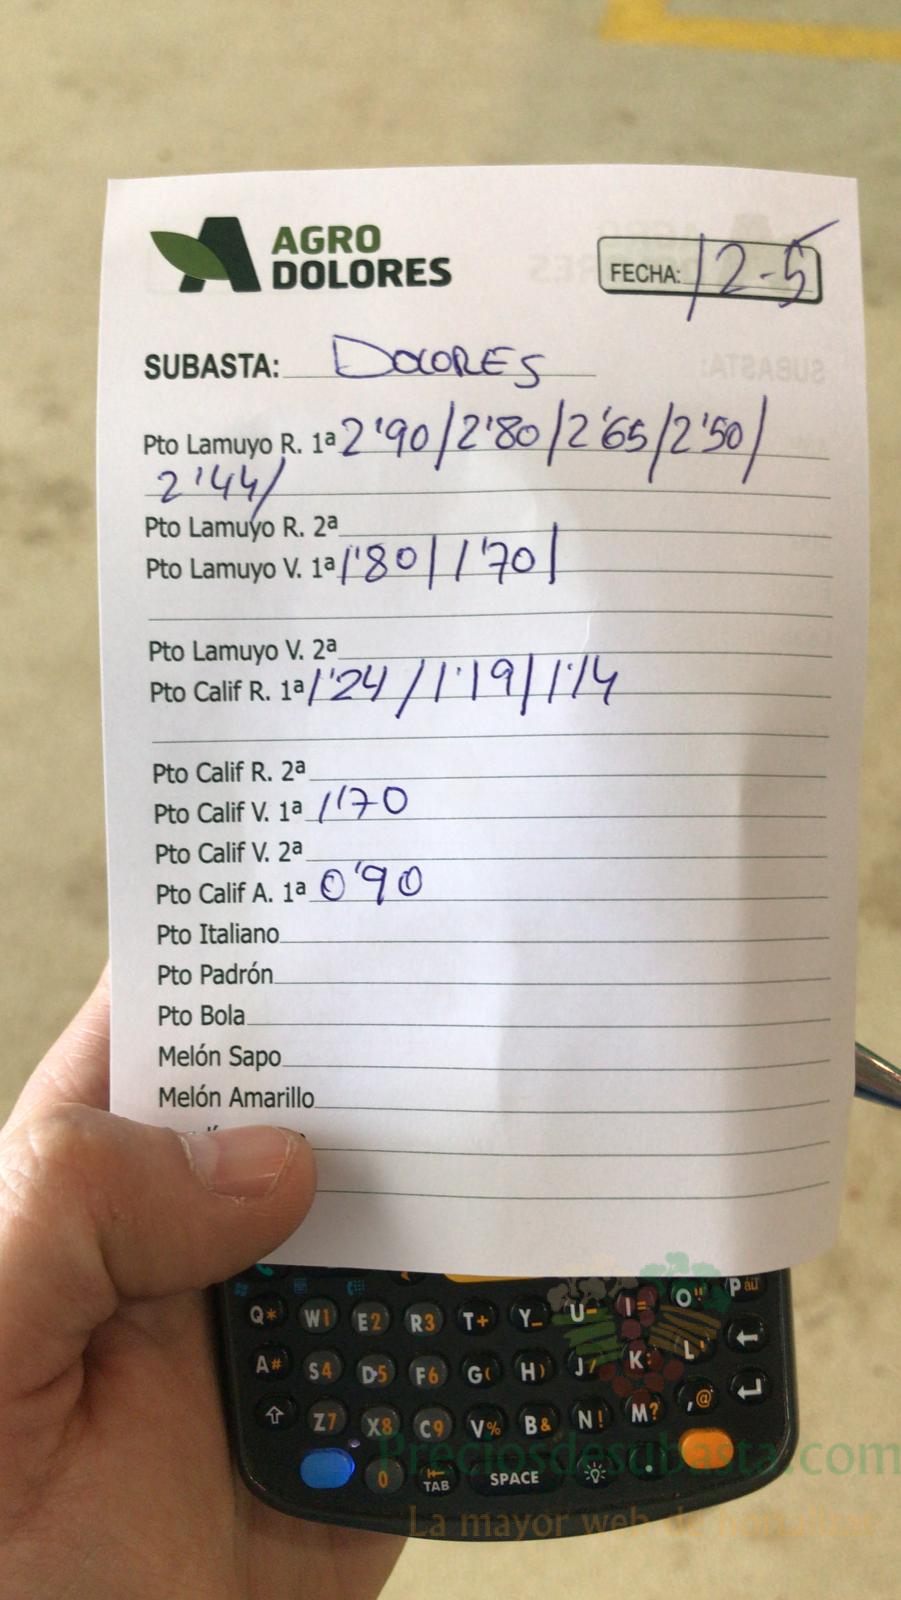 AGRO
DOLORES
FECHA: 12-5
SUBASTA: DOLORES
Pto Lamuyo R. 1ª 2'90/2'80/2'65/2'50/
2'44/
Pto Lamuyo R. 2ª
Pto Lamuyo V. 1ª 1'80/1'70/
Pto Lamuyo V. 2ª
Pto Calif R. 1ª 1'24/1'19/1'14
Pto Calif R. 2ª
Pto Calif V. 1ª 1'70
Pto Calif V. 2ª
Pto Calif A. 1ª 0'90
Pto Italiano
Pto Padrón
Pto Bola
Melón Sapo
Melón Amarillo
Q* W1 E2 R3 T+ Y_ U- I= O" P
A# S4 D5 F6 G( H) J/ K: L'
Z7 X8 C9 V% B& N! M? ,@
0 TAB SPACE .
Preciosdesubasta.com
La mayor web de hortalizas